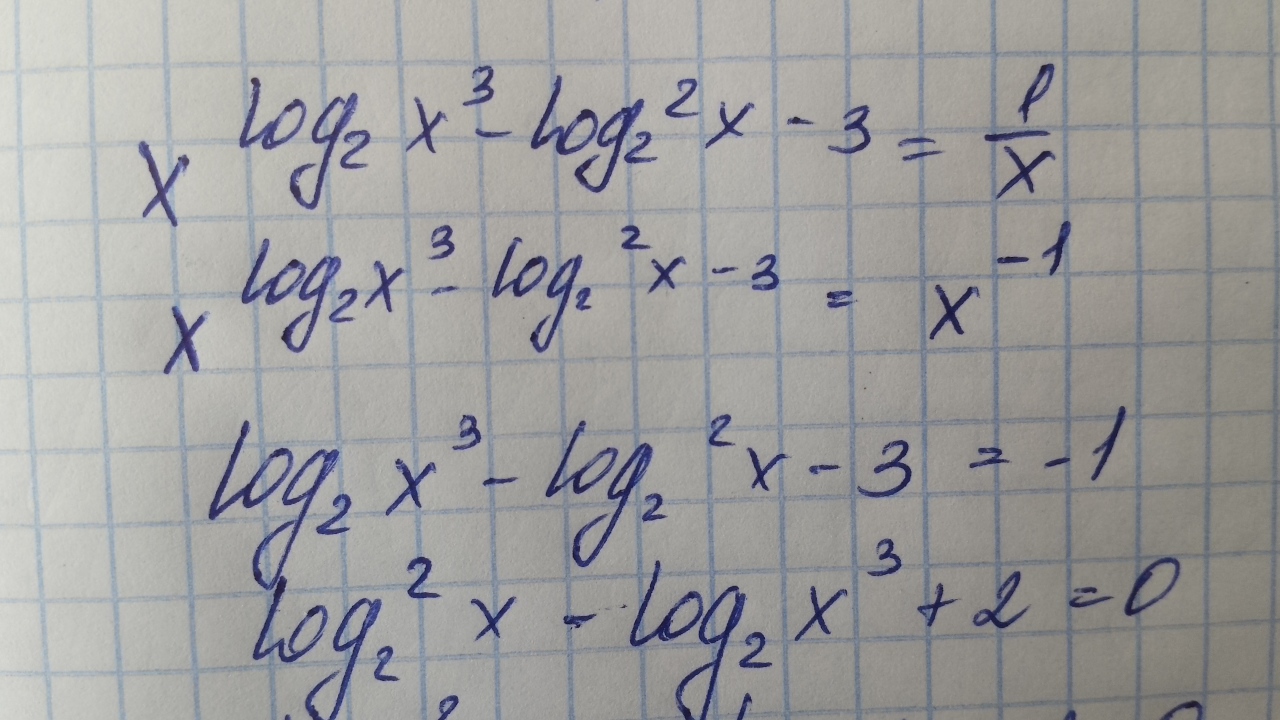 x^(log₂ x³ - log₂² x - 3) = 1/x
x^(log₂ x³ - log₂² x - 3) = x^(-1)
log₂ x³ - log₂² x - 3 = -1
log₂² x - log₂ x³ + 2 = 0